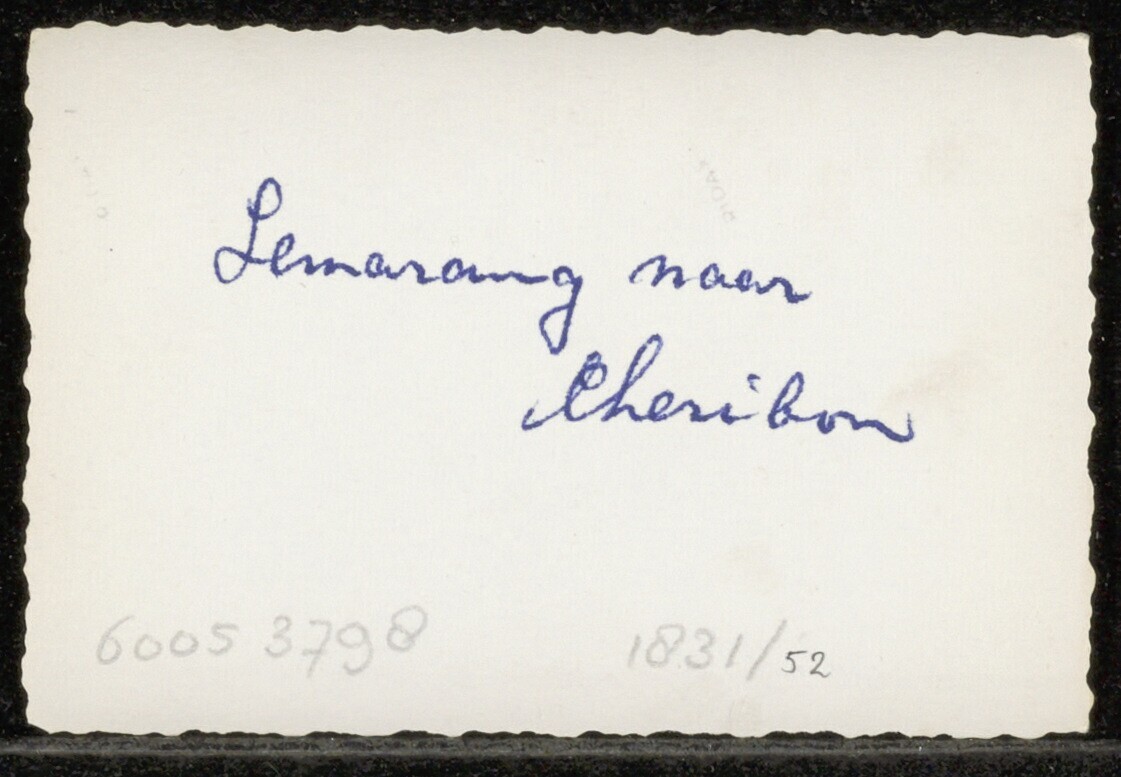 Semarang naar
Cheribon
6005 3798
1831/52